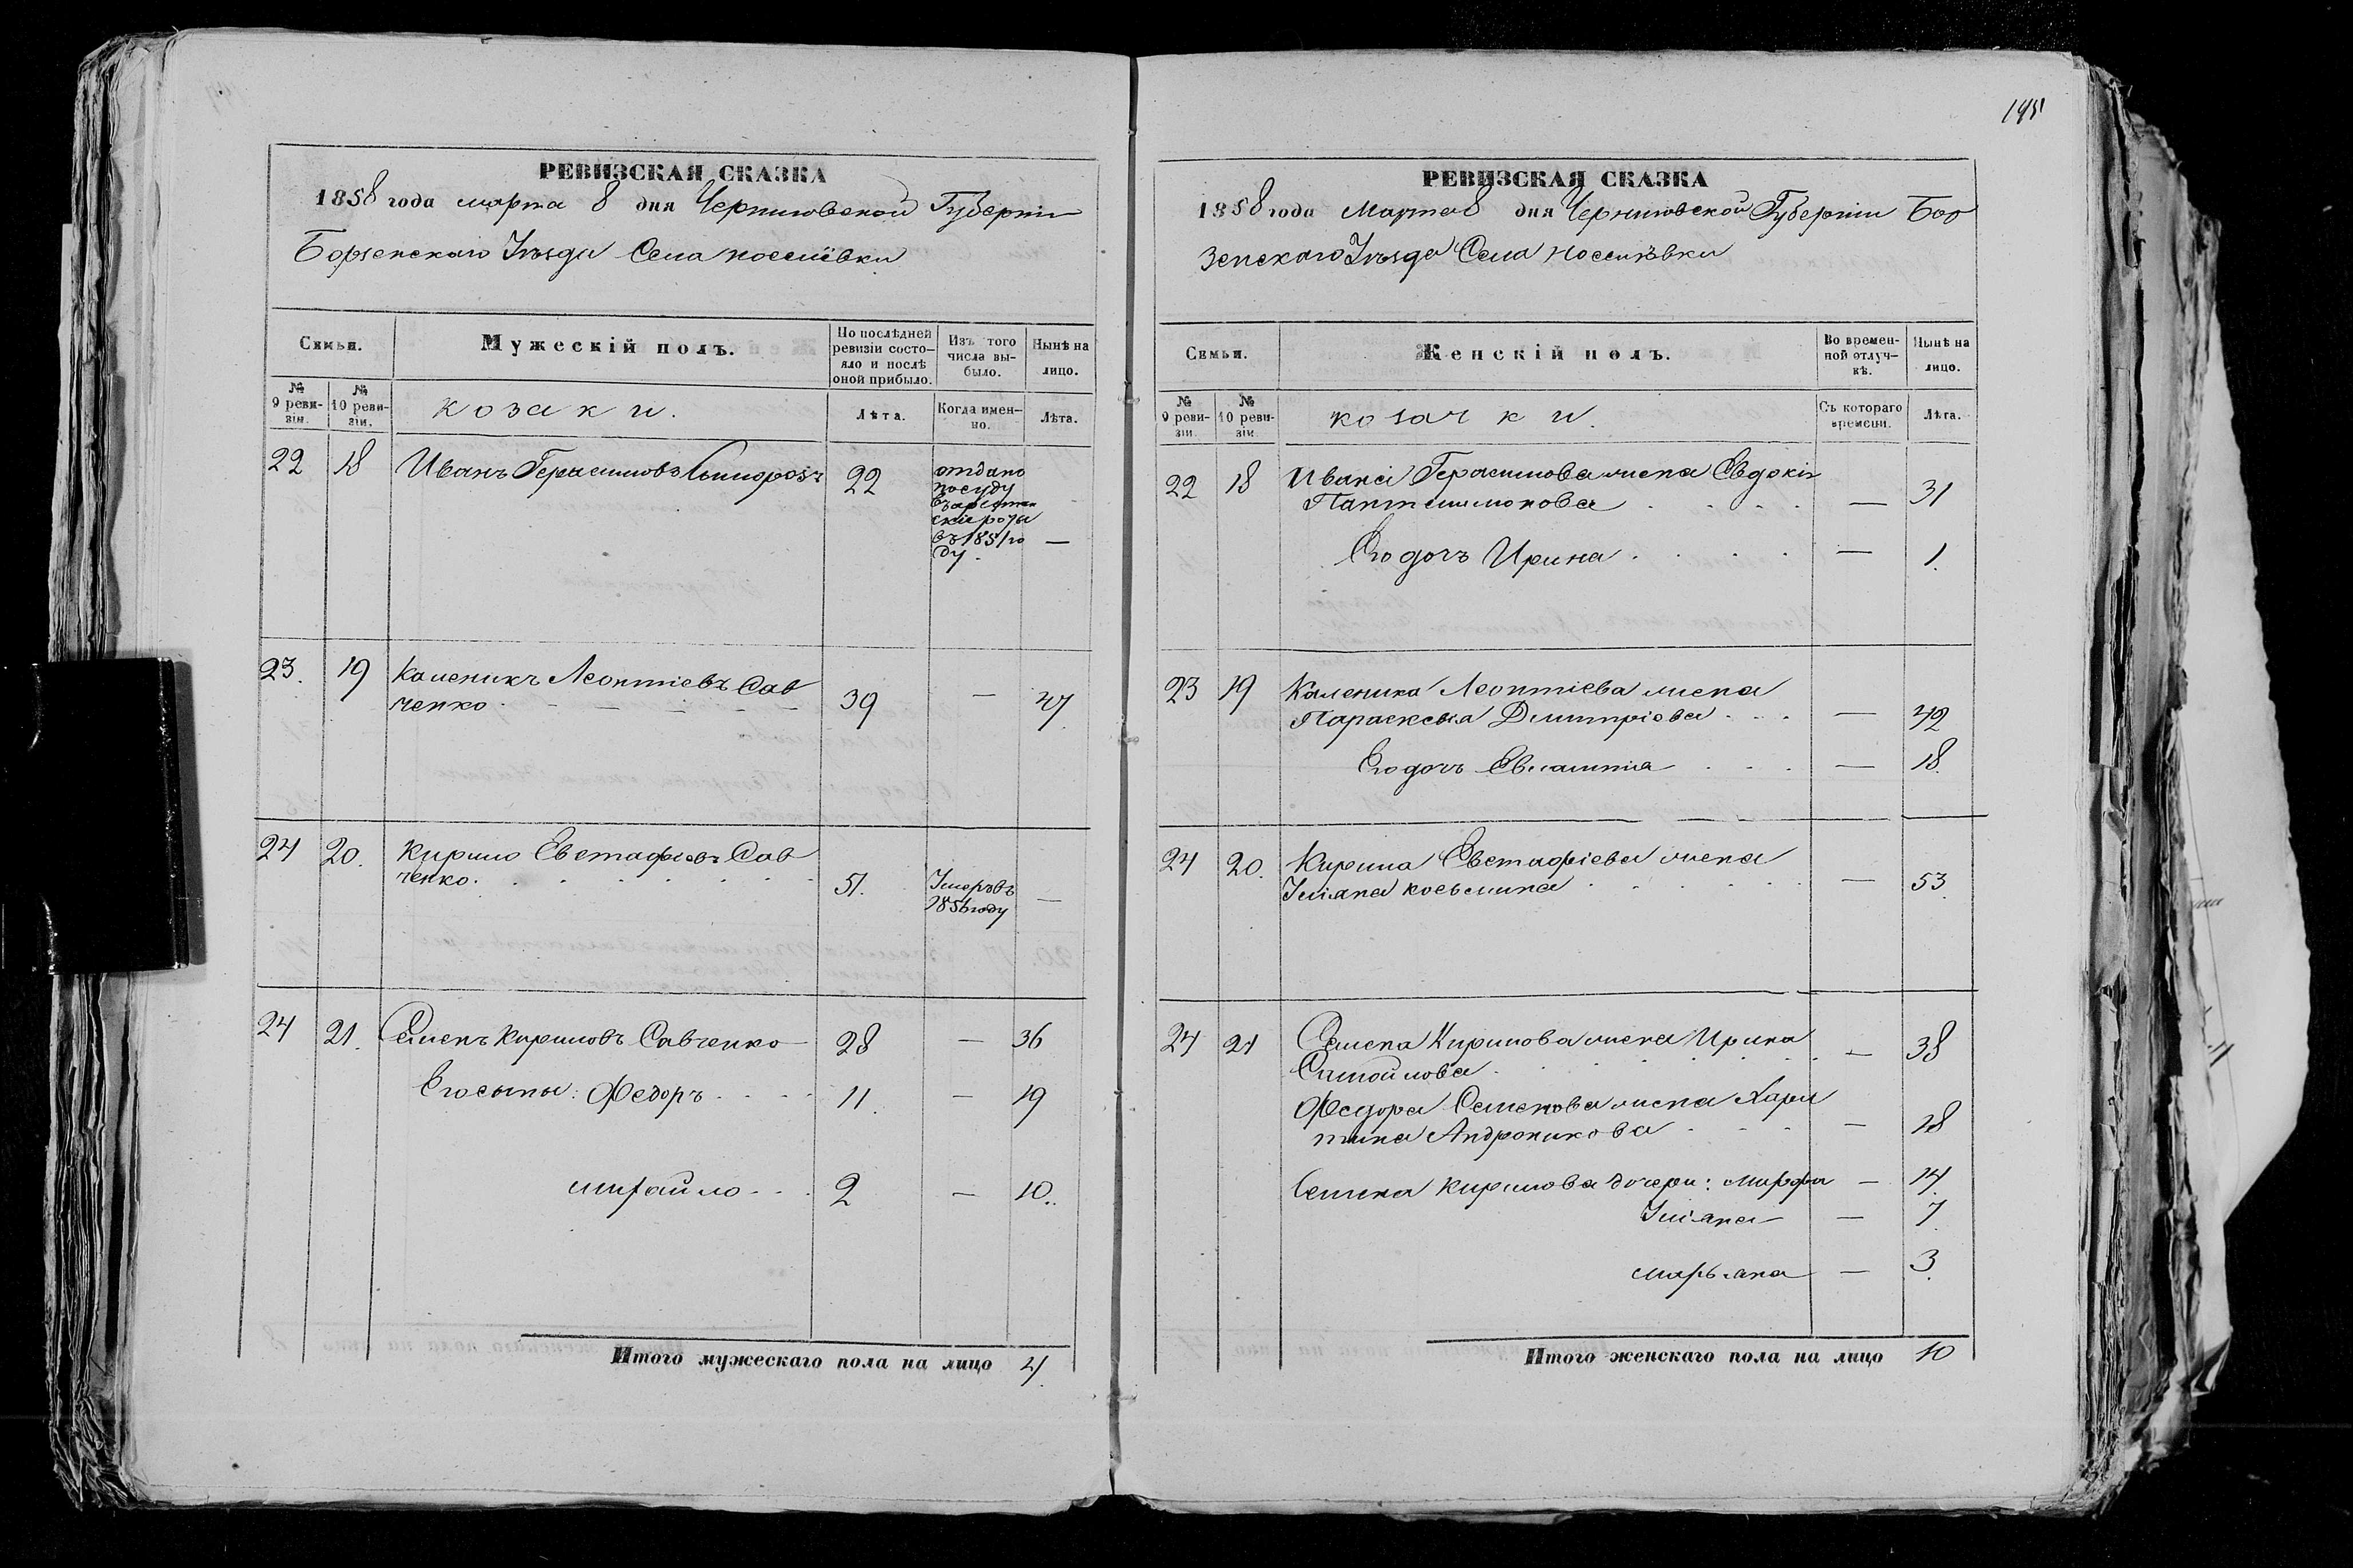 145
РЕВИЗСКАЯ СКАЗКА
1858 года марта 8 дня Черниговской Губерніи
Борзенскаго Уѣзда Села
Семьи.
Мужескій полъ.
По послѣдней ревизіи состояло и послѣ оной прибыло.
Изъ того числа выбыло.
Нынѣ на лицо.
№ 9 ревизіи.
№ 10 ревизіи.
козаки.
Лѣта.
Когда именно.
Лѣта.
22 18 Иванъ Герасимовъ 22
отдано
посуду
въ арестан
скія роты
въ 1851 го —
ду.
23. 19 Каленикъ Леонтіевъ Сав
ченко 39 — 47
24 20. Кирило Евстафіевъ Сав
ченко. 51. Умеръ въ —
1856 году
24 21. Семенъ Кириловъ Савченко 28 — 36
Его сыны: Федоръ 11. — 19
Михайло 2 — 10.
Итого мужескаго пола на лицо 4.
РЕВИЗСКАЯ СКАЗКА
1858 года Марта 8 дня Черниговской Губерніи Бор
зенскаго Уѣзда Села
Семьи.
Женскій полъ.
Во временной отлучкѣ.
Нынѣ на лицо.
№ 9 ревизіи.
№ 10 ревизіи.
козачки.
Съ котораго времени.
Лѣта.
22 18 Ивана Герасимова жена Евдокія
Пантелимонова — 31
Его дочь Ирина — 1.
23 19 Каленика Леонтіева жена
Параскевія Димитріова — 42
Его дочь Евлампія — 18.
24 20. Кирила Евстафіева жена
Уліяна Косьмина — 53.
24 21 Семена Кирилова жена Ирина
Самойлова — 38
Федора Семенова жена Хари
тина Андроникова — 18
Семена Кирилова дочери: Марфа — 14
Уліяна — 7.
Марьяна — 3.
Итого женскаго пола на лицо 10